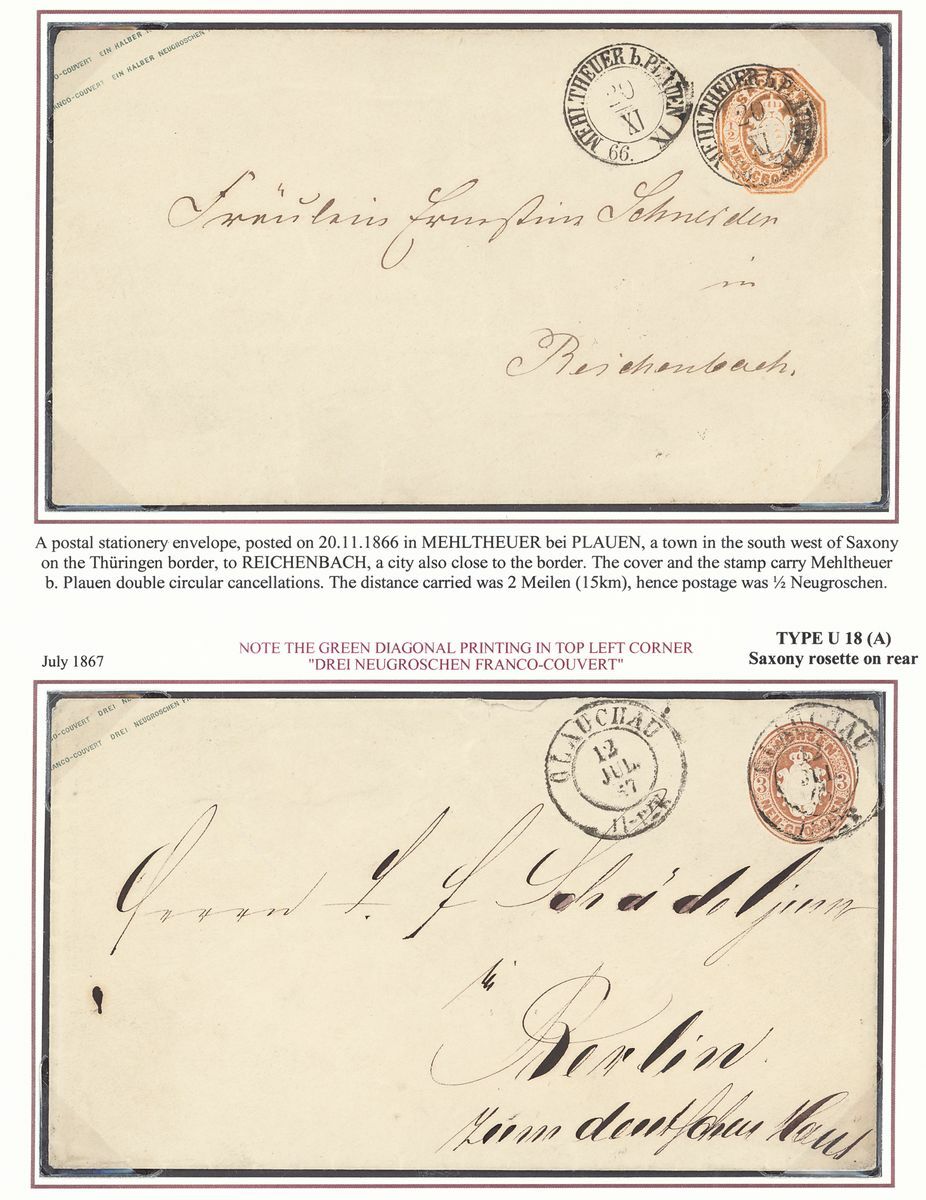 CO-COUVERT EIN HALBER N
ANCO-COUVERT EIN HALBER NEUGROSCHEN
MEHLTHEUER b. PLAUEN IX
20
XI
66.
MEHLTHEUER b. PLAUEN
20
XI
½ NEUGROSCH
Fräulein Ernestine Schneider
in
Reichenbach.
A postal stationery envelope, posted on 20.11.1866 in MEHLTHEUER bei PLAUEN, a town in the south west of Saxony
on the Thüringen border, to REICHENBACH, a city also close to the border. The cover and the stamp carry Mehltheuer
b. Plauen double circular cancellations. The distance carried was 2 Meilen (15km), hence postage was ½ Neugroschen.
July 1867
NOTE THE GREEN DIAGONAL PRINTING IN TOP LEFT CORNER
"DREI NEUGROSCHEN FRANCO-COUVERT"
TYPE U 18 (A)
Saxony rosette on rear
CO-COUVERT DREI N
ANCO-COUVERT DREI NEUGROSCHEN F
GLAUCHAU
12
JUL.
67
3 3
Herrn
Berlin
zum deutschen Haus